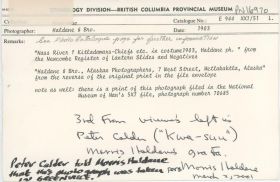 OLOGY DIVISION—BRITISH COLUMBIA PROVINCIAL MUSEUM PN 16970
Catalogue No.: E 944 XXI/51
Photographer: Haldane & Bro. Date: 1903
Remarks: See Photo Catalogue page for further information
"Naas River ? Kitladamas-Chiefs etc. in costume 1903, Haldane ph." from
the Newcombe Register of Lantern Slides and Negatives
"Haldane & Bro., Alaskan Photographers, 7 West Street, Metlakahtla, Alaska"
from the reverse of the original print in the file envelope
note as well: there is a print of this photograph filed in the National
Museum of Man's NWC photograph number 70685
3rd from viewer's left is
Peter Calder ("Kwa-suu")
Morris Haldane's grandfa.
Peter Calder told Morris Haldane
that this photograph was taken
in GREENVILLE.
Morris Haldane
March 2, 2001